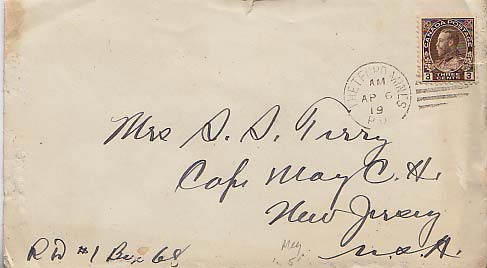 CANADA POSTAGE
3 THREE CENTS 3
THETFORD MINES
AM
AP 6
19
Mrs S. S. Terry
Cape May C. H.
New Jersey
U.S.A.
R D #1 Box 68